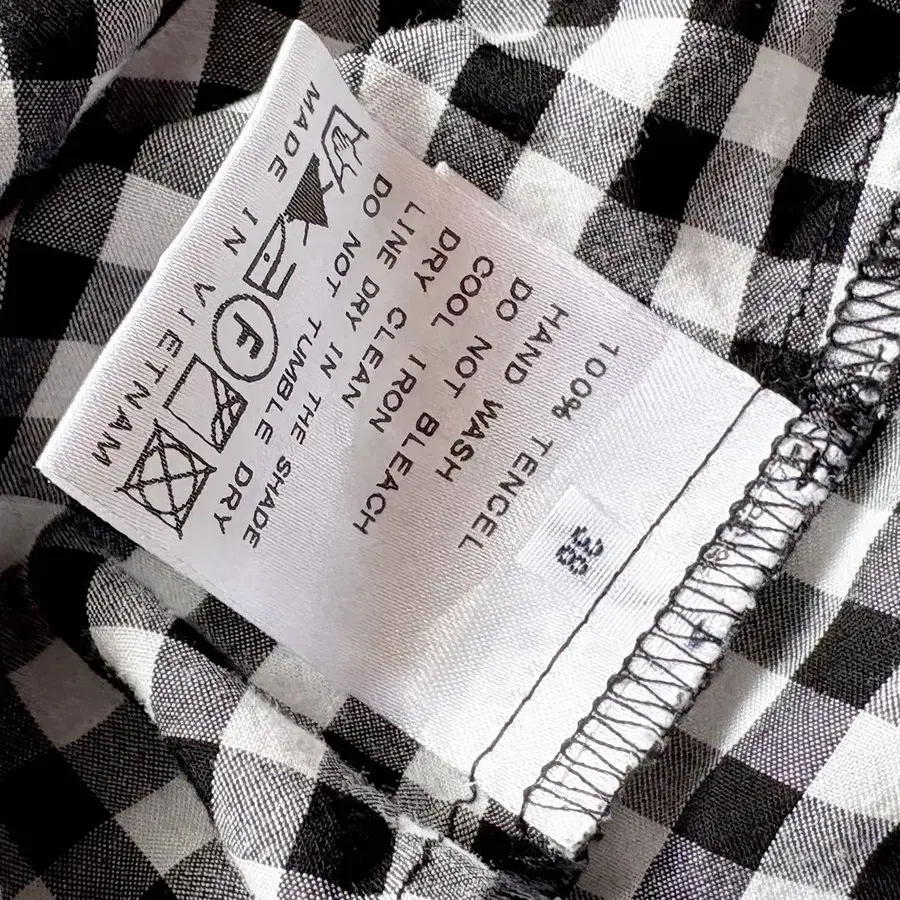 38
100% TENCEL
HAND WASH
DO NOT BLEACH
COOL IRON
DRY CLEAN
LINE DRY IN THE SHADE
DO NOT TUMBLE DRY
F
MADE IN VIETNAM